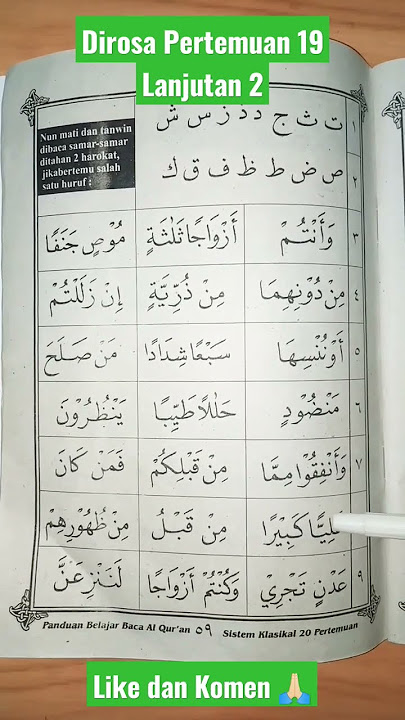 Dirosa Pertemuan 19
Lanjutan 2
Nun mati dan tanwin
dibaca samar-samar
ditahan 2 harokat,
jikabertemu salah
satu huruf :
١ ت ث ج د ذ ز س ش
٢ ص ض ط ظ ف ق ك
٣ وَأَنْتُمْ أَزْوَاجًا ثَلٰثَةً مُوْصٍ جَنَفًا
٤ مِنْ دُوْنِهِمَا مِنْ ذُرِّيَّةِ إِنْ زَلَلْتُمْ
٥ أَوْنُنْسِهَا سَبْعًا شِدَادًا مَنْ صَلَحَ
٦ مَنْضُوْدٍ حَلٰلًا طَيِّبًا يَنْظُرُوْنَ
٧ وَأَنْفِقُوْا مِمَّا مِنْ قَبْلِكُمْ فَمَنْ كَانَ
عَلِيًّا كَبِيْرًا مِنْ قَبْلُ مِنْ ظُهُوْرِهِمْ
٩ عَدْنٍ تَجْرِيْ وَكُنْتُمْ أَزْوَاجًا لَنَنْزِعَنَّ
Panduan Belajar Baca Al Qur'an ٥٩ Sistem Klasikal 20 Pertemuan
Like dan Komen 🙏